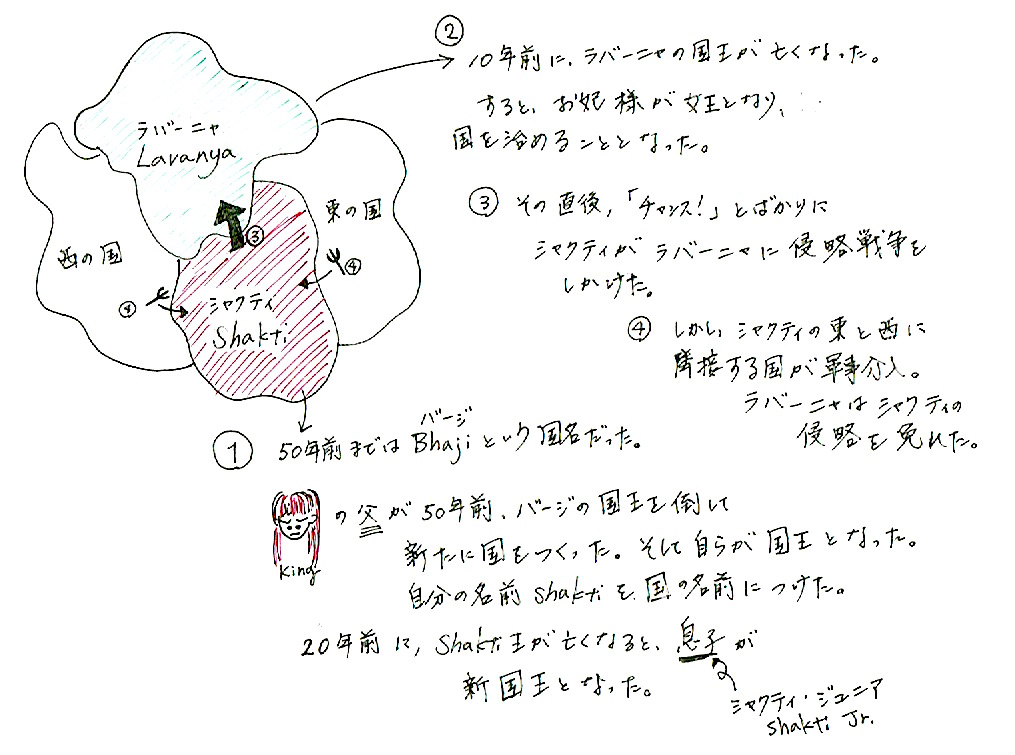 ②
10年前に、ラバーニャの国王が亡くなった。
すると、お妃様が女王となり、
国を治めることとなった。
ラバーニャ
Lavanya
③ その直後、「チャンス!」とばかりに
シャクティがラバーニャに侵略戦争を
しかけた。
東の国
西の国
③
④
④
シャクティ
Shakti
④ しかし、シャクティの東と西に
隣接する国が軍事介入。
ラバーニャはシャクティの
侵略を免れた。
バージ
① 50年前まではBhajiという国名だった。
の父が50年前、バージの国王を倒して
新たに国をつくった。そして自らが国王となった。
King
自分の名前Shaktiを、国の名前につけた。
20年前に、Shakti王が亡くなると、息子が
新国王となった。
シャクティ・ジュニア
Shakti Jr.